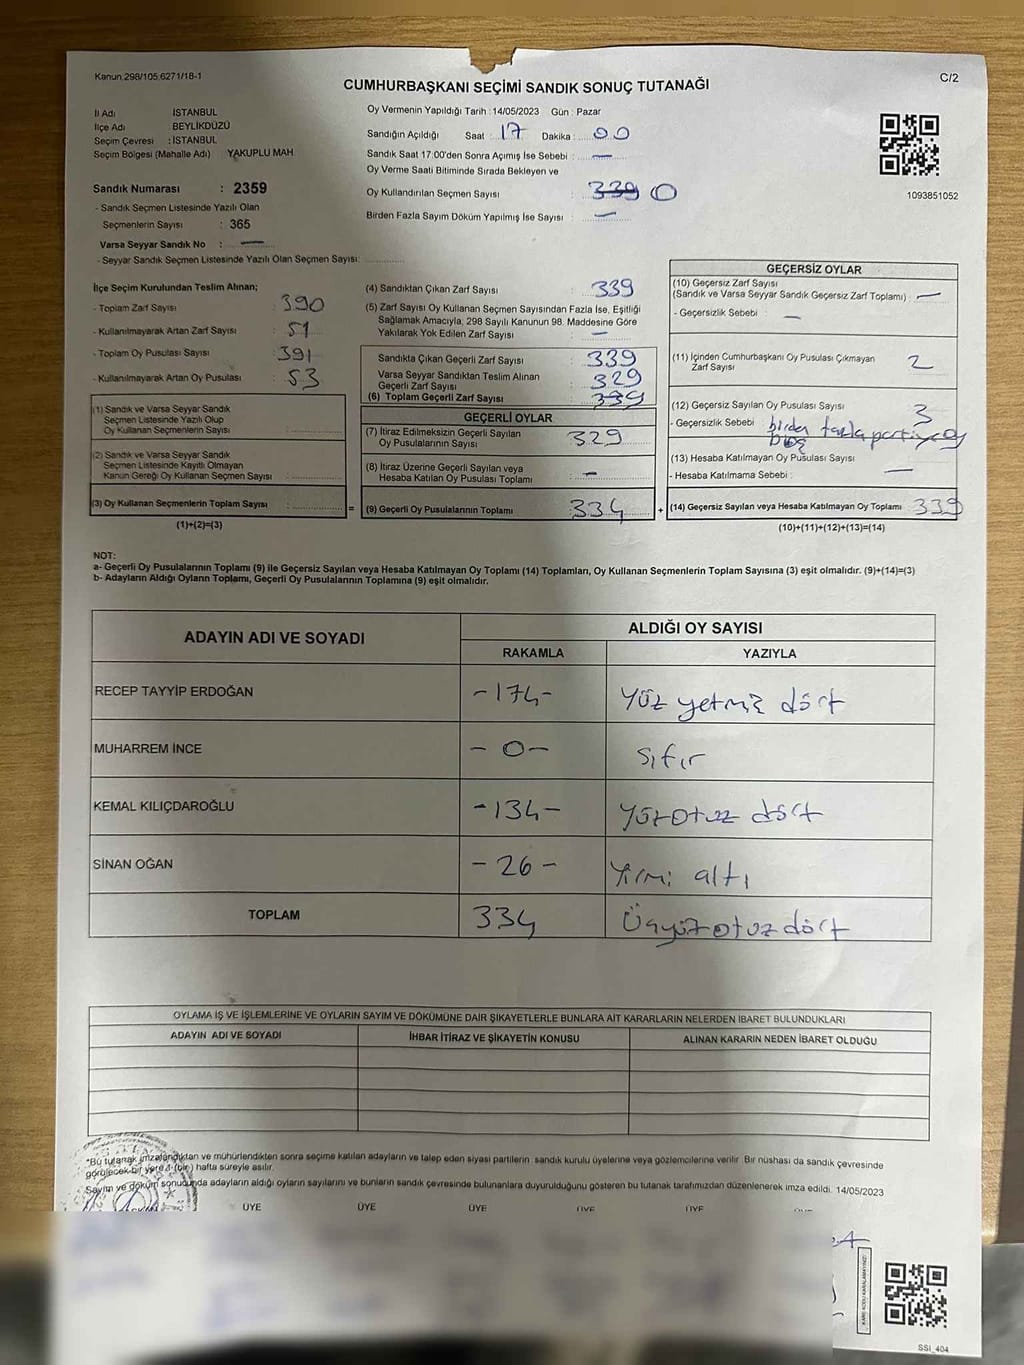 Kanun.298/105.6271/18-1
C/2
CUMHURBAŞKANI SEÇİMİ SANDIK SONUÇ TUTANAĞI
İl Adı İSTANBUL
İlçe Adı BEYLİKDÜZÜ
Seçim Çevresi : İSTANBUL
Seçim Bölgesi (Mahalle Adı) YAKUPLU MAH.
Sandık Numarası : 2359
- Sandık Seçmen Listesinde Yazılı Olan
Seçmenlerin Sayısı : 365
Varsa Seyyar Sandık No : —
- Seyyar Sandık Seçmen Listesinde Yazılı Olan Seçmen Sayısı:
Oy Vermenin Yapıldığı Tarih : 14/05/2023 Gün : Pazar
Sandığın Açıldığı Saat : 17 Dakika : 00
Sandık Saat 17:00'den Sonra Açımış İse Sebebi : —
Oy Verme Saati Bitiminde Sırada Bekleyen ve
Oy Kullandırılan Seçmen Sayısı : 339 0
Birden Fazla Sayım Döküm Yapılmış İse Sayısı : —
1093851052
İlçe Seçim Kurulundan Teslim Alınan;
- Toplam Zarf Sayısı : 390
- Kullanılmayarak Artan Zarf Sayısı : 51
- Toplam Oy Pusulası Sayısı : 391
- Kullanılmayarak Artan Oy Pusulası : 53
(1) Sandık ve Varsa Seyyar Sandık
Seçmen Listesinde Yazılı Olup
Oy Kullanan Seçmenlerin Sayısı :
(2) Sandık ve Varsa Seyyar Sandık
Seçmen Listesinde Kayıtlı Olmayan
Kanun Gereği Oy Kullanan Seçmen Sayısı :
(3) Oy Kullanan Seçmenlerin Toplam Sayısı :
(1)+(2)=(3)
(4) Sandıktan Çıkan Zarf Sayısı : 339
(5) Zarf Sayısı Oy Kullanan Seçmen Sayısından Fazla İse, Eşitliği
Sağlamak Amacıyla, 298 Sayılı Kanunun 98. Maddesine Göre
Yakılarak Yok Edilen Zarf Sayısı : —
Sandıkta Çıkan Geçerli Zarf Sayısı : 339
Varsa Seyyar Sandıktan Teslim Alınan
Geçerli Zarf Sayısı : 329
(6) Toplam Geçerli Zarf Sayısı : 339
GEÇERLİ OYLAR
(7) İtiraz Edilmeksizin Geçerli Sayılan
Oy Pusulalarının Sayısı : 329
(8) İtiraz Üzerine Geçerli Sayılan veya
Hesaba Katılan Oy Pusulası Toplamı : —
= (9) Geçerli Oy Pusulalarının Toplamı : 334
GEÇERSİZ OYLAR
(10) Geçersiz Zarf Sayısı
(Sandık ve Varsa Seyyar Sandık Geçersiz Zarf Toplamı) : —
- Geçersizlik Sebebi : —
(11) İçinden Cumhurbaşkanı Oy Pusulası Çıkmayan
Zarf Sayısı : 2
(12) Geçersiz Sayılan Oy Pusulası Sayısı : 3
- Geçersizlik Sebebi : birden fazla partiye oy
boş
(13) Hesaba Katılmayan Oy Pusulası Sayısı : —
- Hesaba Katılmama Sebebi :
+ (14) Geçersiz Sayılan veya Hesaba Katılmayan Oy Toplamı : 339
(10)+(11)+(12)+(13)=(14)
NOT:
a- Geçerli Oy Pusulalarının Toplamı (9) ile Geçersiz Sayılan veya Hesaba Katılmayan Oy Toplamı (14) Toplamları, Oy Kullanan Seçmenlerin Toplam Sayısına (3) eşit olmalıdır. (9)+(14)=(3)
b- Adayların Aldığı Oyların Toplamı, Geçerli Oy Pusulalarının Toplamına (9) eşit olmalıdır.
ADAYIN ADI VE SOYADI ALDIĞI OY SAYISI
RAKAMLA YAZIYLA
RECEP TAYYİP ERDOĞAN -174- Yüz yetmiş dört
MUHARREM İNCE -0- Sıfır
KEMAL KILIÇDAROĞLU -134- Yüzotuz dört
SİNAN OĞAN -26- Yirmi altı
TOPLAM 334 Üçyüzotuzdört
OYLAMA İŞ VE İŞLEMLERİNE VE OYLARIN SAYIM VE DÖKÜMÜNE DAİR ŞİKAYETLERLE BUNLARA AİT KARARLARIN NELERDEN İBARET BULUNDUKLARI
ADAYIN ADI VE SOYADI İHBAR İTİRAZ VE ŞİKAYETİN KONUSU ALINAN KARARIN NEDEN İBARET OLDUĞU
*Bu tutanak imzalandıktan ve mühürlendikten sonra seçime katılan adayların ve talep eden siyasi partilerin sandık kurulu üyelerine veya gözlemcilerine verilir. Bir nüshası da sandık çevresinde
görülecek bir yere 1 (bir) hafta süreyle asılır.
Sayım ve döküm sonucunda adayların aldığı oyların sayılarını ve bunların sandık çevresinde bulunanlara duyurulduğunu gösteren bu tutanak tarafımızdan düzenlenerek imza edildi. 14/05/2023
ÜYE ÜYE ÜYE ÜYE ÜYE
KARE KODU KARALAMAYINIZ!
SSI_404